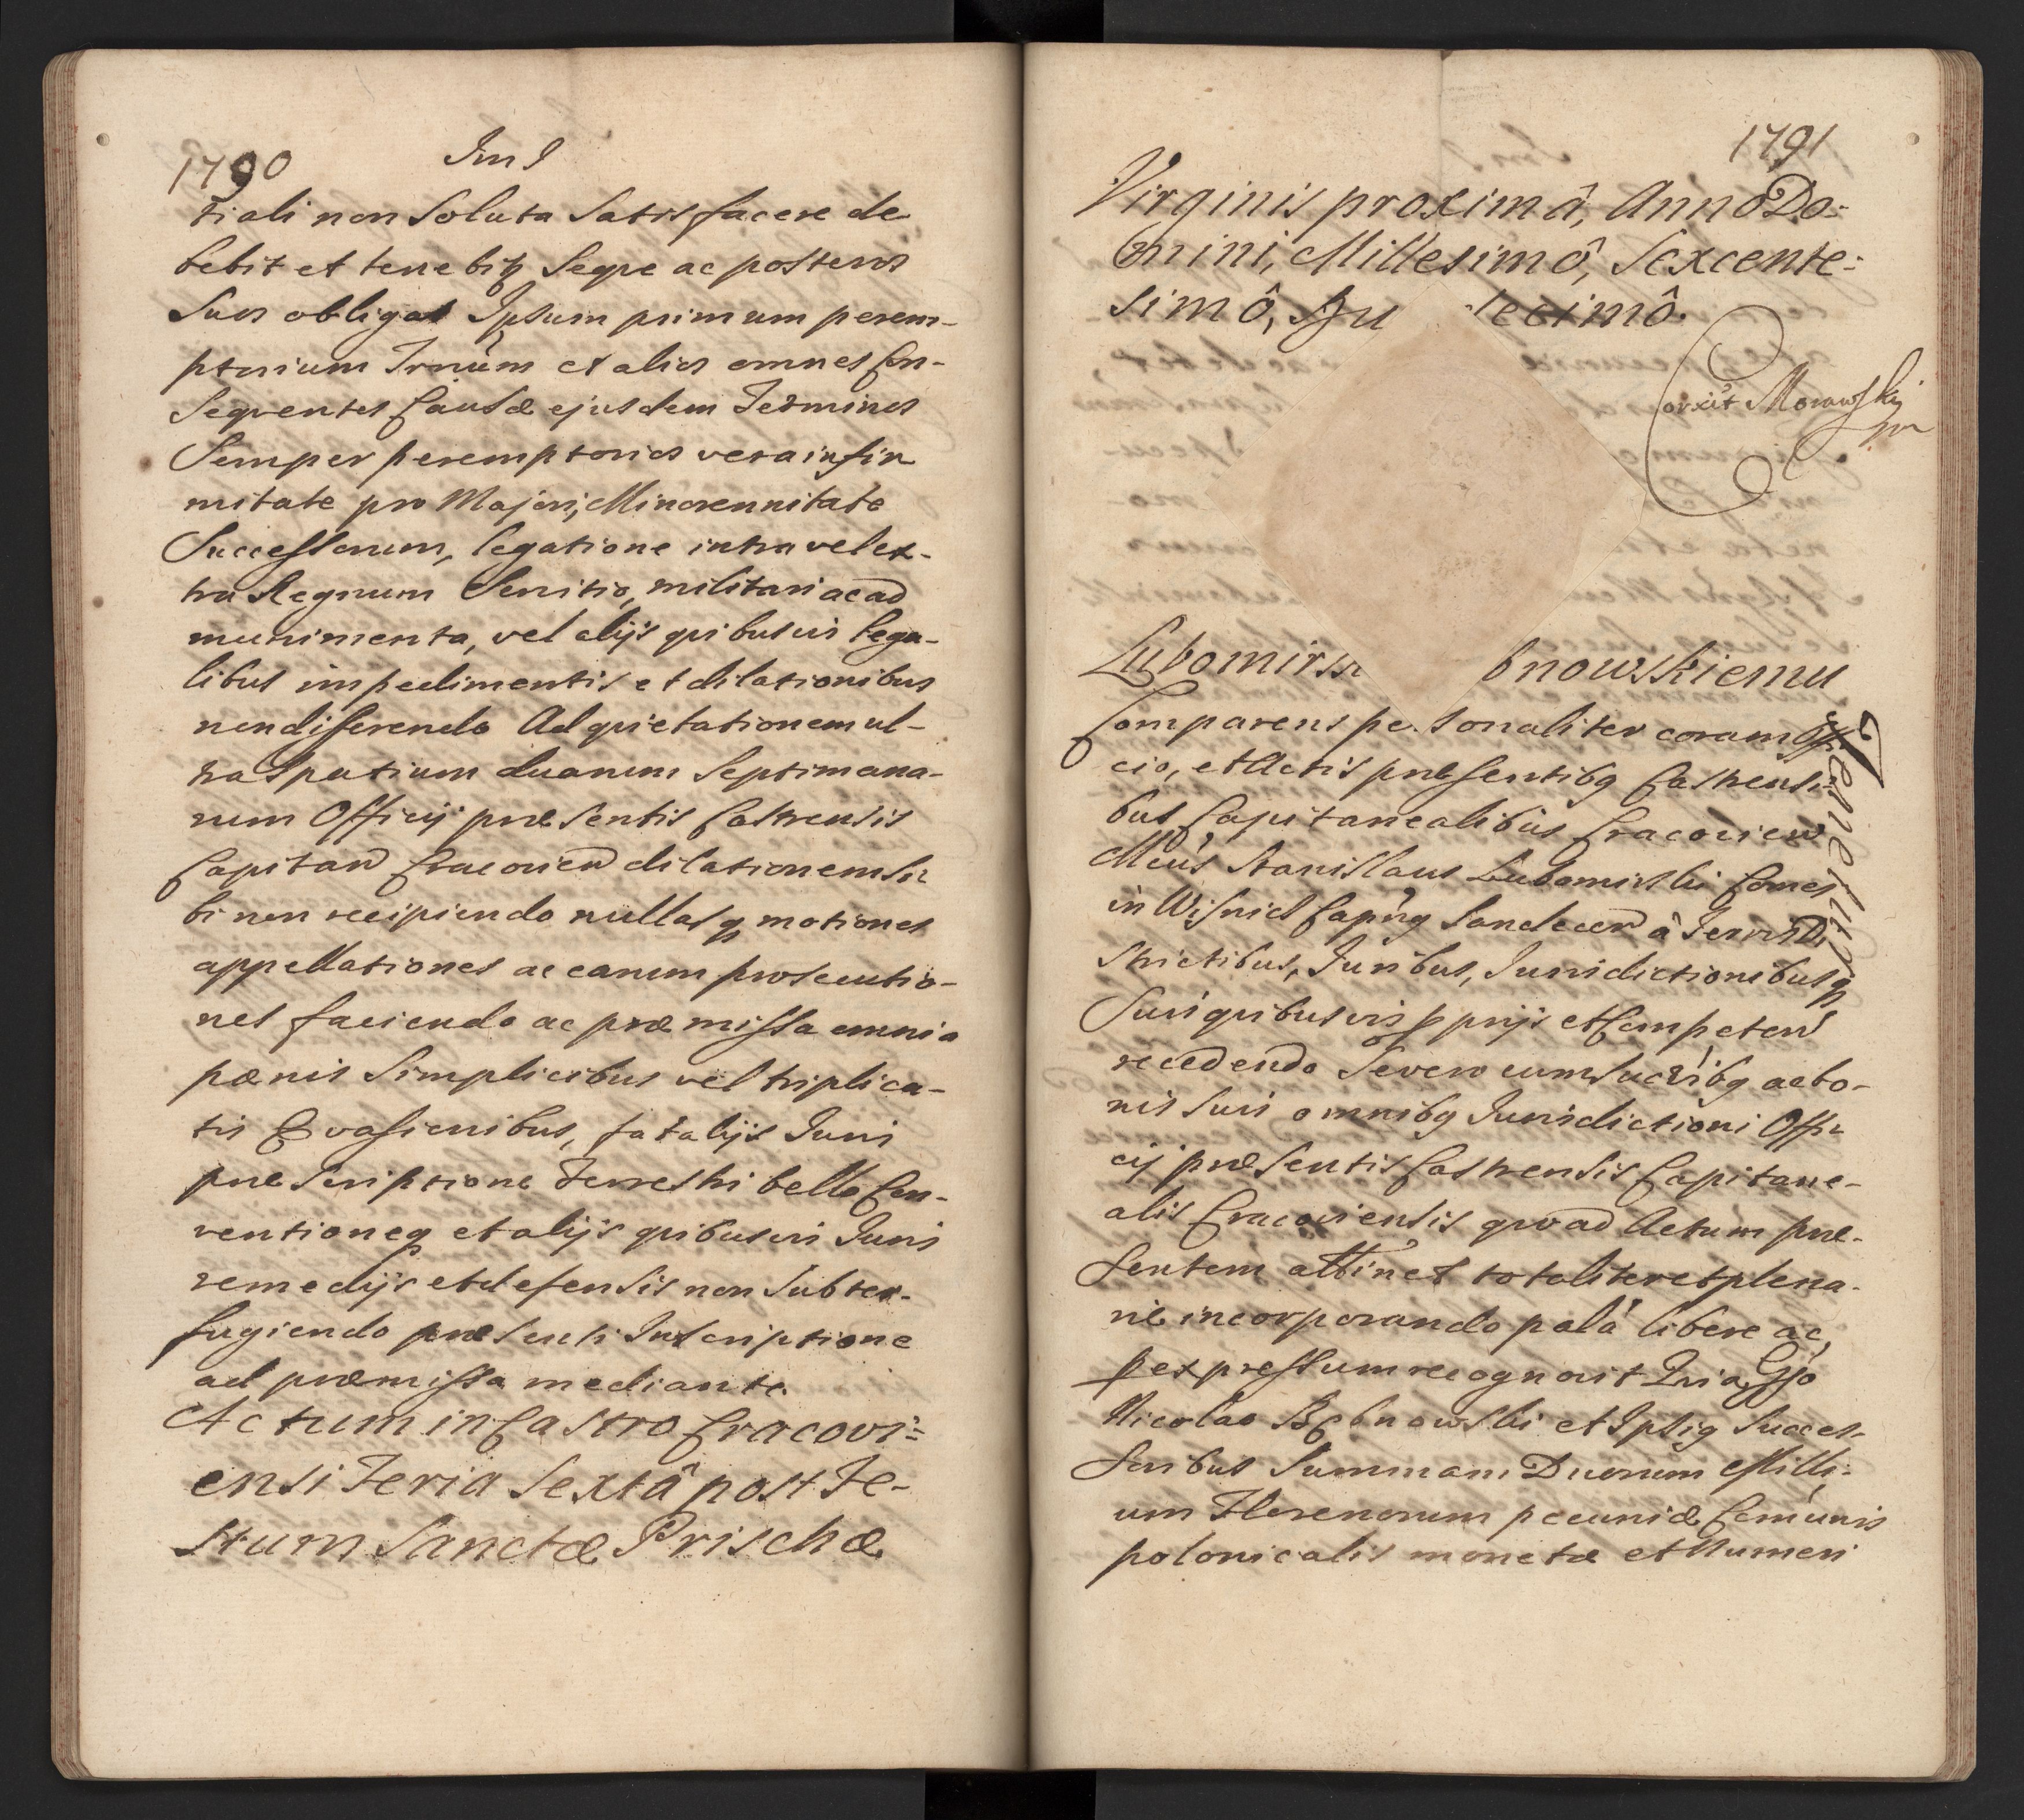 1790
Im J
tiali non Soluta Satisfacere de
bebit et tenebitz Seqve ac posteros
Suos obligat Ipsum primum perem-
ptorium Trnum et alios omnes Con-
Seqventes Causæ ejusdem Terminos
Semper peremptorios vera infir
mitate pro Majori, Minorennitate
Successorum, legatione intra vel ex-
tra Regnum Servitio, militari ac ad
munimenta, vel alijs qvibusvis lega-
libus impedimentis et dilationibus
non differendo Ad qvietationem ul-
tra Spatium duarum Septimana-
rum Officij præsentis Castrensis
Capitan Cracovien dilationem Si
bi non recipiendo nullasq motiones
appellationes ac earum prosecutio-
nes faciendo ac præmissa omnia
pænis Simplicibus vel triplica-
tis Evasionibus, fatalijs Juris
præscriptione Terrestri bello Con-
ventioneq et alijs qvibusvis Juris
remedijs et defensis non Subter-
fugiendo præsenti Inscriptione
ad præmissa mediante.
Actum in Castro Cracovi=
ensi Feria Sextâ post Fe-
stum Sanctæ Prischæ
1791
Virginis proximâ, Annô Do=
mini, Millesimô, Sexcente=
simô, ecimô.
Corexit Morawski
mp
Lubomirs bnowskiemu
Comparens personaliter coram Offi
cio, et Actis præsentibq Castrensi
bus Capitanealibus Cracovien
Mcus Stanislaus Lubomirski Comes
in Wisnicz Capnq Sandecen â Terris Di
Strictibus, Juribus, Jurisdictionibusq
Suis qvibusvis pprijs et Competen
recedendo Severo cum Sucribq ac bo-
nis Suis omnibq Jurisdictioni Offi
cij præsentis Castrensis Capitane-
alis Cracoviensis qvoad Actum præ-
Sentem attinet totaliter et plena-
riè incorporando palá libere ac
p expressum recognovit Qvia Gso
Nicolao Bębnowski et Ipsiq Succes-
Soribus Summam Duorum Milli-
um Florenorum pecuniæ Comunis
polonicalis monetæ et Numeri